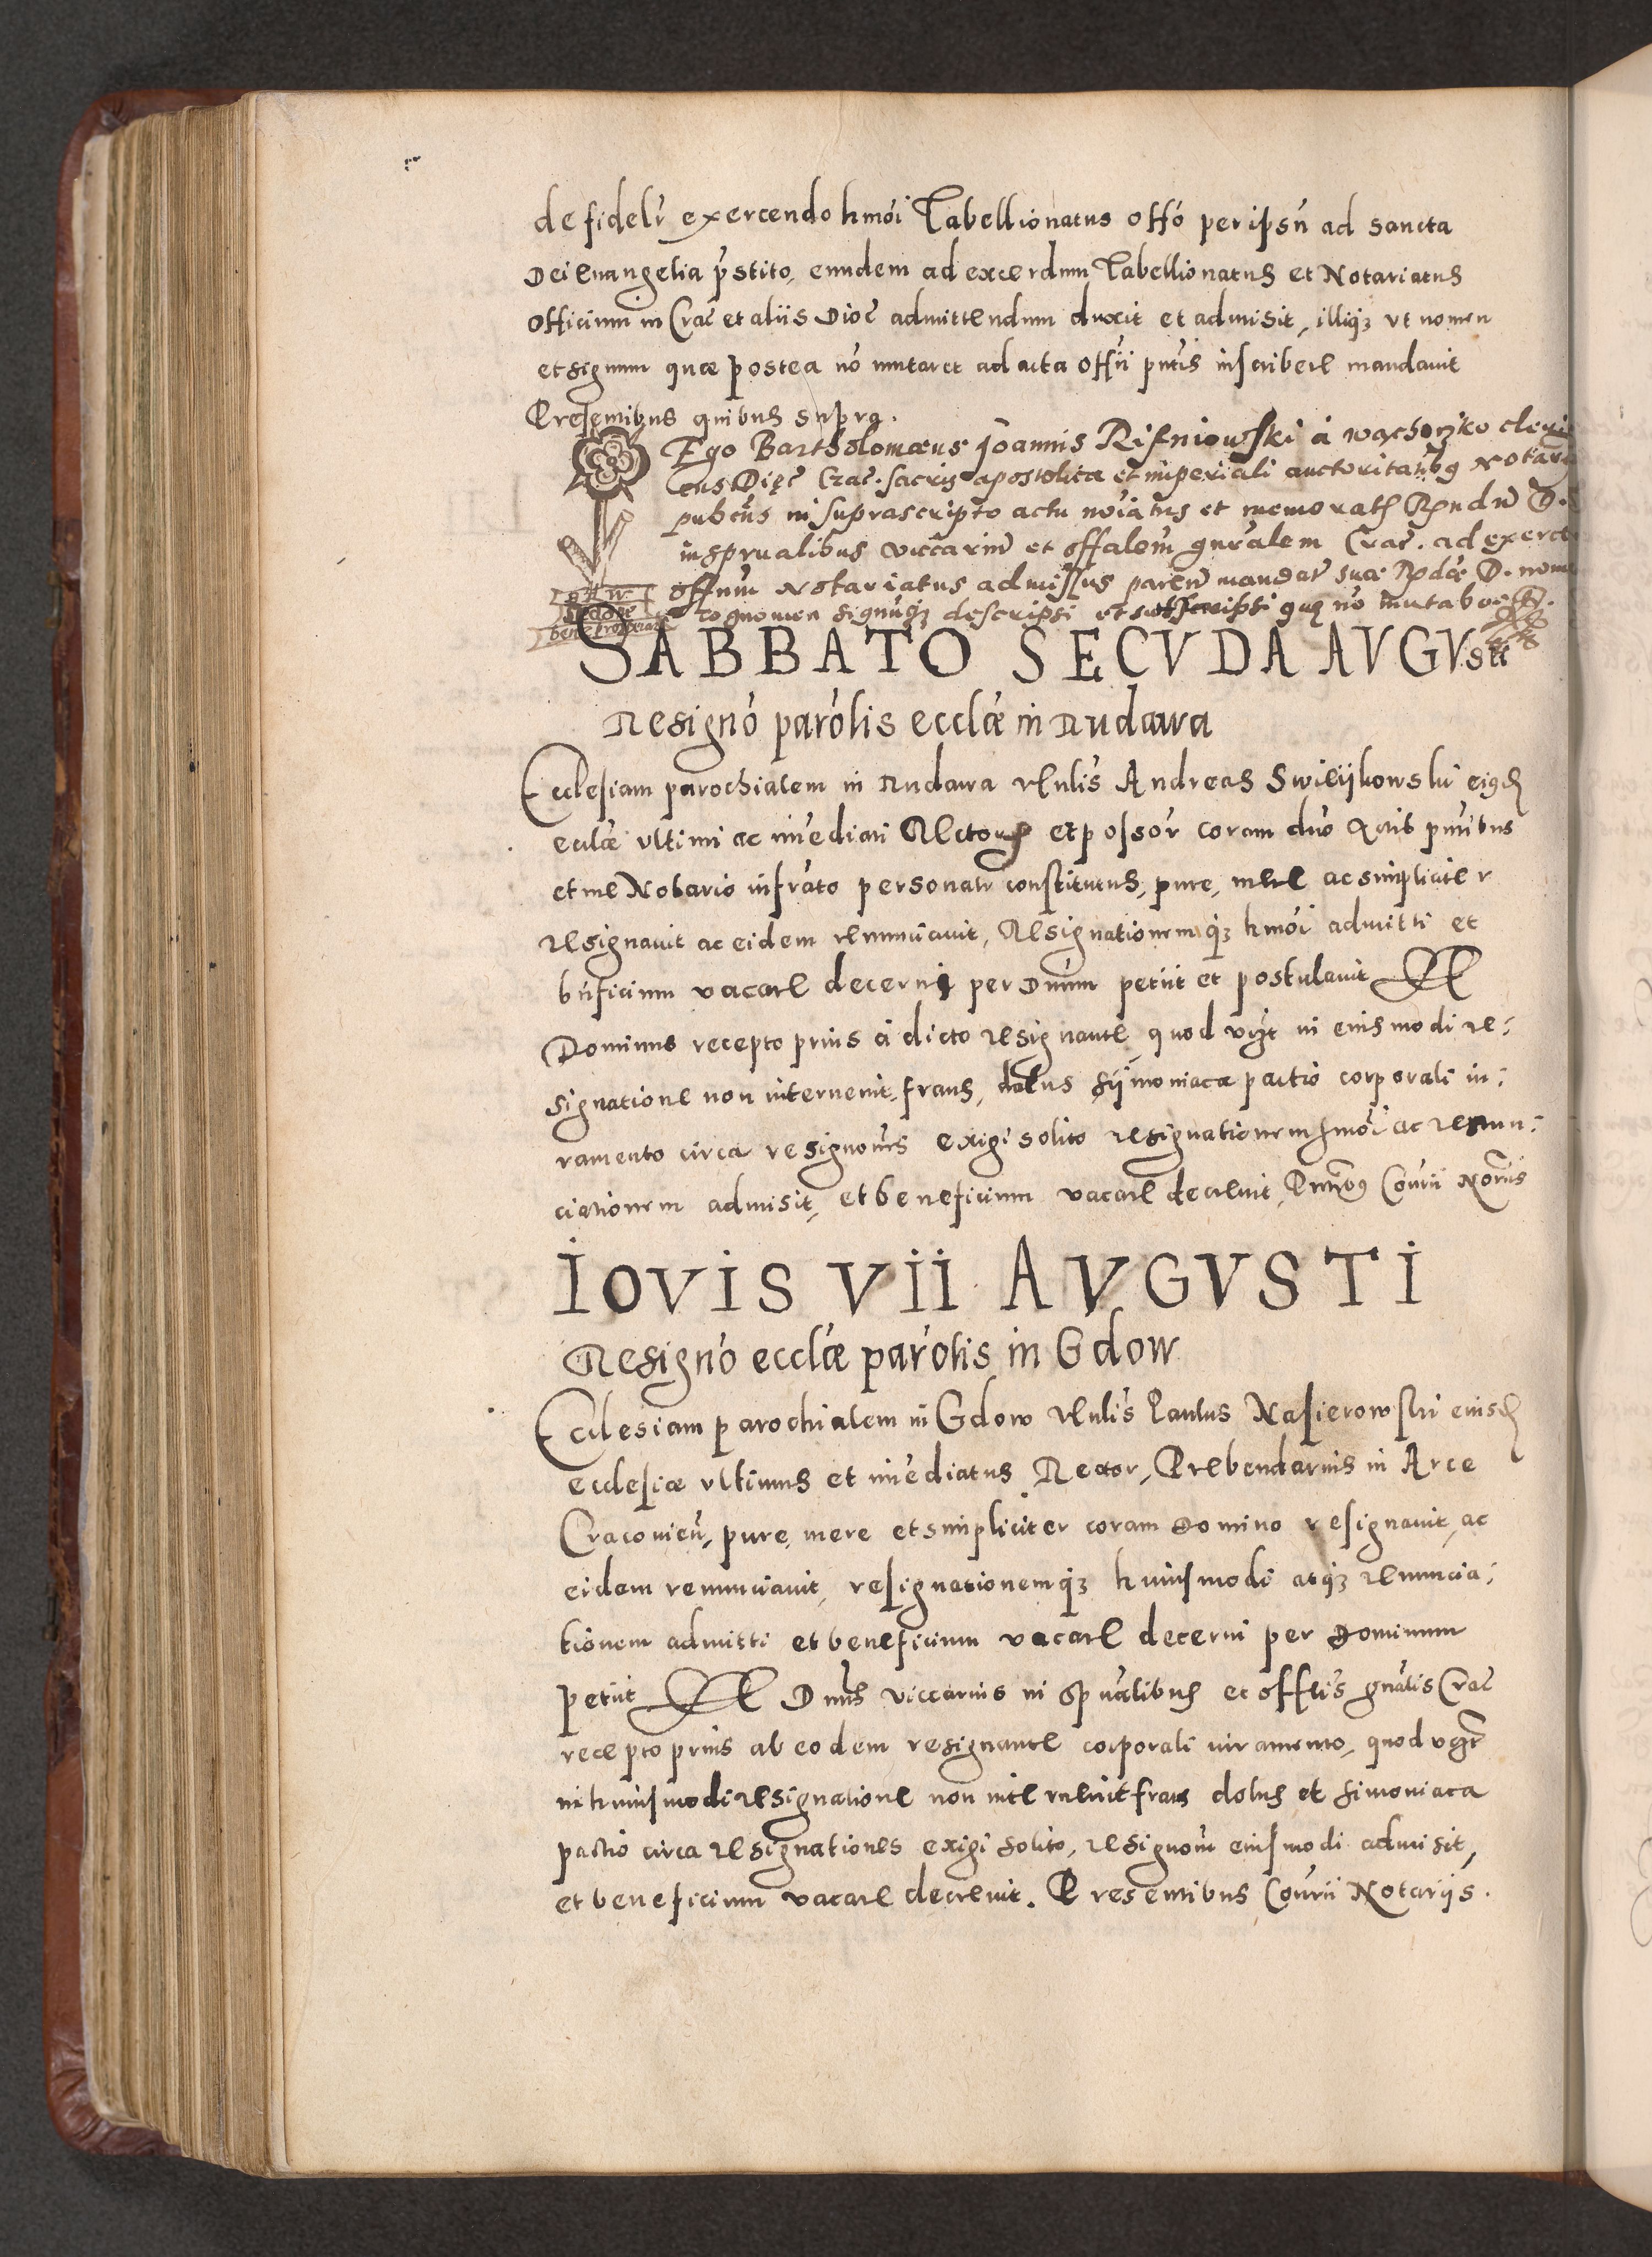 de fideli exercendo hmoi Tabellionatus offo per ipsu ad sancta
Dei euangelia pstito, eundem ad excerdum Tabellionatus et Notariatus
Officium in Crac et aliis Dioc admittendum duxit et admisit, illiqȝ vt nomen
et signum quæ postea nō mutaret ad acta offii pntis inscribere mandauit
Presentibus quibus supra.
Ego Bartholomæus Joannis Rifniowski à wąchoczko cleri
cus Dięc Crac. sacris apostolica et imperiali auctoritatibꝯ Notari
pubcus in suprascripto actu noiatus et memorati Rndū D.
in sprualibus viccariū et offalem gnralem Crac. ad exerce
offium Notariatus admissus paren mandat suæ Rdæ D. nome
cognomen signūqȝ descripsi et subscripsi quę nō mutabo
SABBATO SECVDA AVGVsti
Resigno parolis ecclæ in Rudawa
Ecclesiam parochialem in Rudawa Venlis Andreas Swieijkowski eiꝯd
eccłæ vltimi ac imediati Rector et possor coram dno Actis pntibus
et me Notario infrato personatr constitutus, pure, mere ac simpliciter
resignauit ac eidem renunciauit, Resignationemqȝ hmoi admitti et
bnficium vacare decerni per Dnum petiit et postulauit Et
Dominus recepto prius à dicto resignante quod vidzt in eiusmodi re-
signatione non interuenit fraus, dolus sijmoniacæ pactio corporali iu-
ramento circa resignoms exigi solito resignationem hmoi ac renun-
ciationem admisit, et beneficium vacare decreuit, Pntibꝯ Courii Noriis
IOVIS VII AVGVSTI
Resigno ecclæ parolis in Gdow
Ecclesiam parochialem in Gdow Venlis Paulus Nasierowski eiusd
ecclesiæ vltimus et imediatus Rector, Prebendarius in Arce
Cracouien, pure, mere et simpliciter coram Domino resignauit, ac
eidem renunciauit, resignationemqȝ huiusmodi atqȝ renuncia-
tionem admitti et beneficium vacare decerni per Dominum
petiit Et Dnus viccarius in Spualibus et offlis gnalis Crac
recepto prius ab eodem resignante corporali iuramento, quod vidzt
in huiusmodi resignatione non interuenit fraus dolus et simoniaca
pactio circa resignationes exigi solito, resignom eiusmodi admisit,
et beneficium vacare decreuit. Presentibus Courii Notariis.